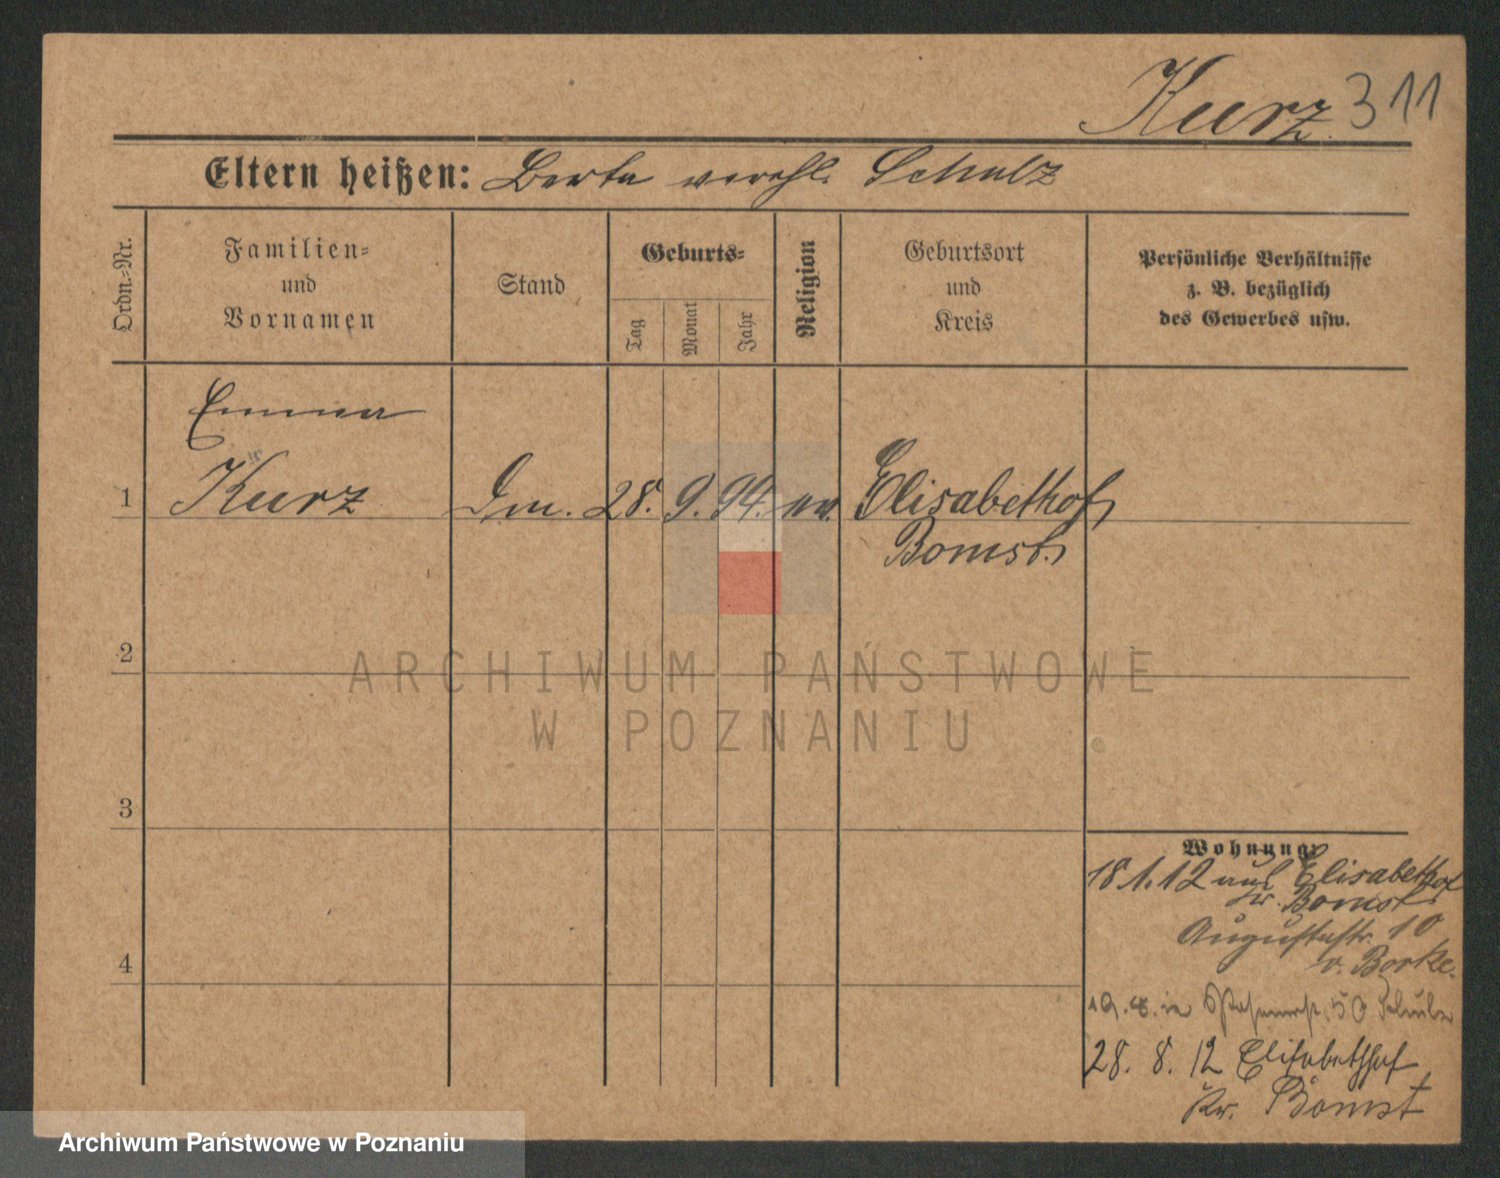 Kurz 311
Eltern heißen: Berta verehl. Schulz
Ordn.-Nr.
Familien-
und
Vornamen
Stand
Geburts-
Tag
Monat
Jahr
Religion
Geburtsort
und
Kreis
Persönliche Verhältnisse
z. B. bezüglich
des Gewerbes usw.
Emma
1 Kurz Dm. 28. 9. 94. ev. Elisabethof,
Bomst.
2
3
4
ARCHIWUM PAŃSTWOWE
W POZNANIU
Wohnung
18.1.12 aus Elisabethof
Kr. Bomst
Augustastr. 10
v. Borke.
19. 8. in 50
28. 8. 12 Elisabethhof
Kr. Bomst
Archiwum Państwowe w Poznaniu